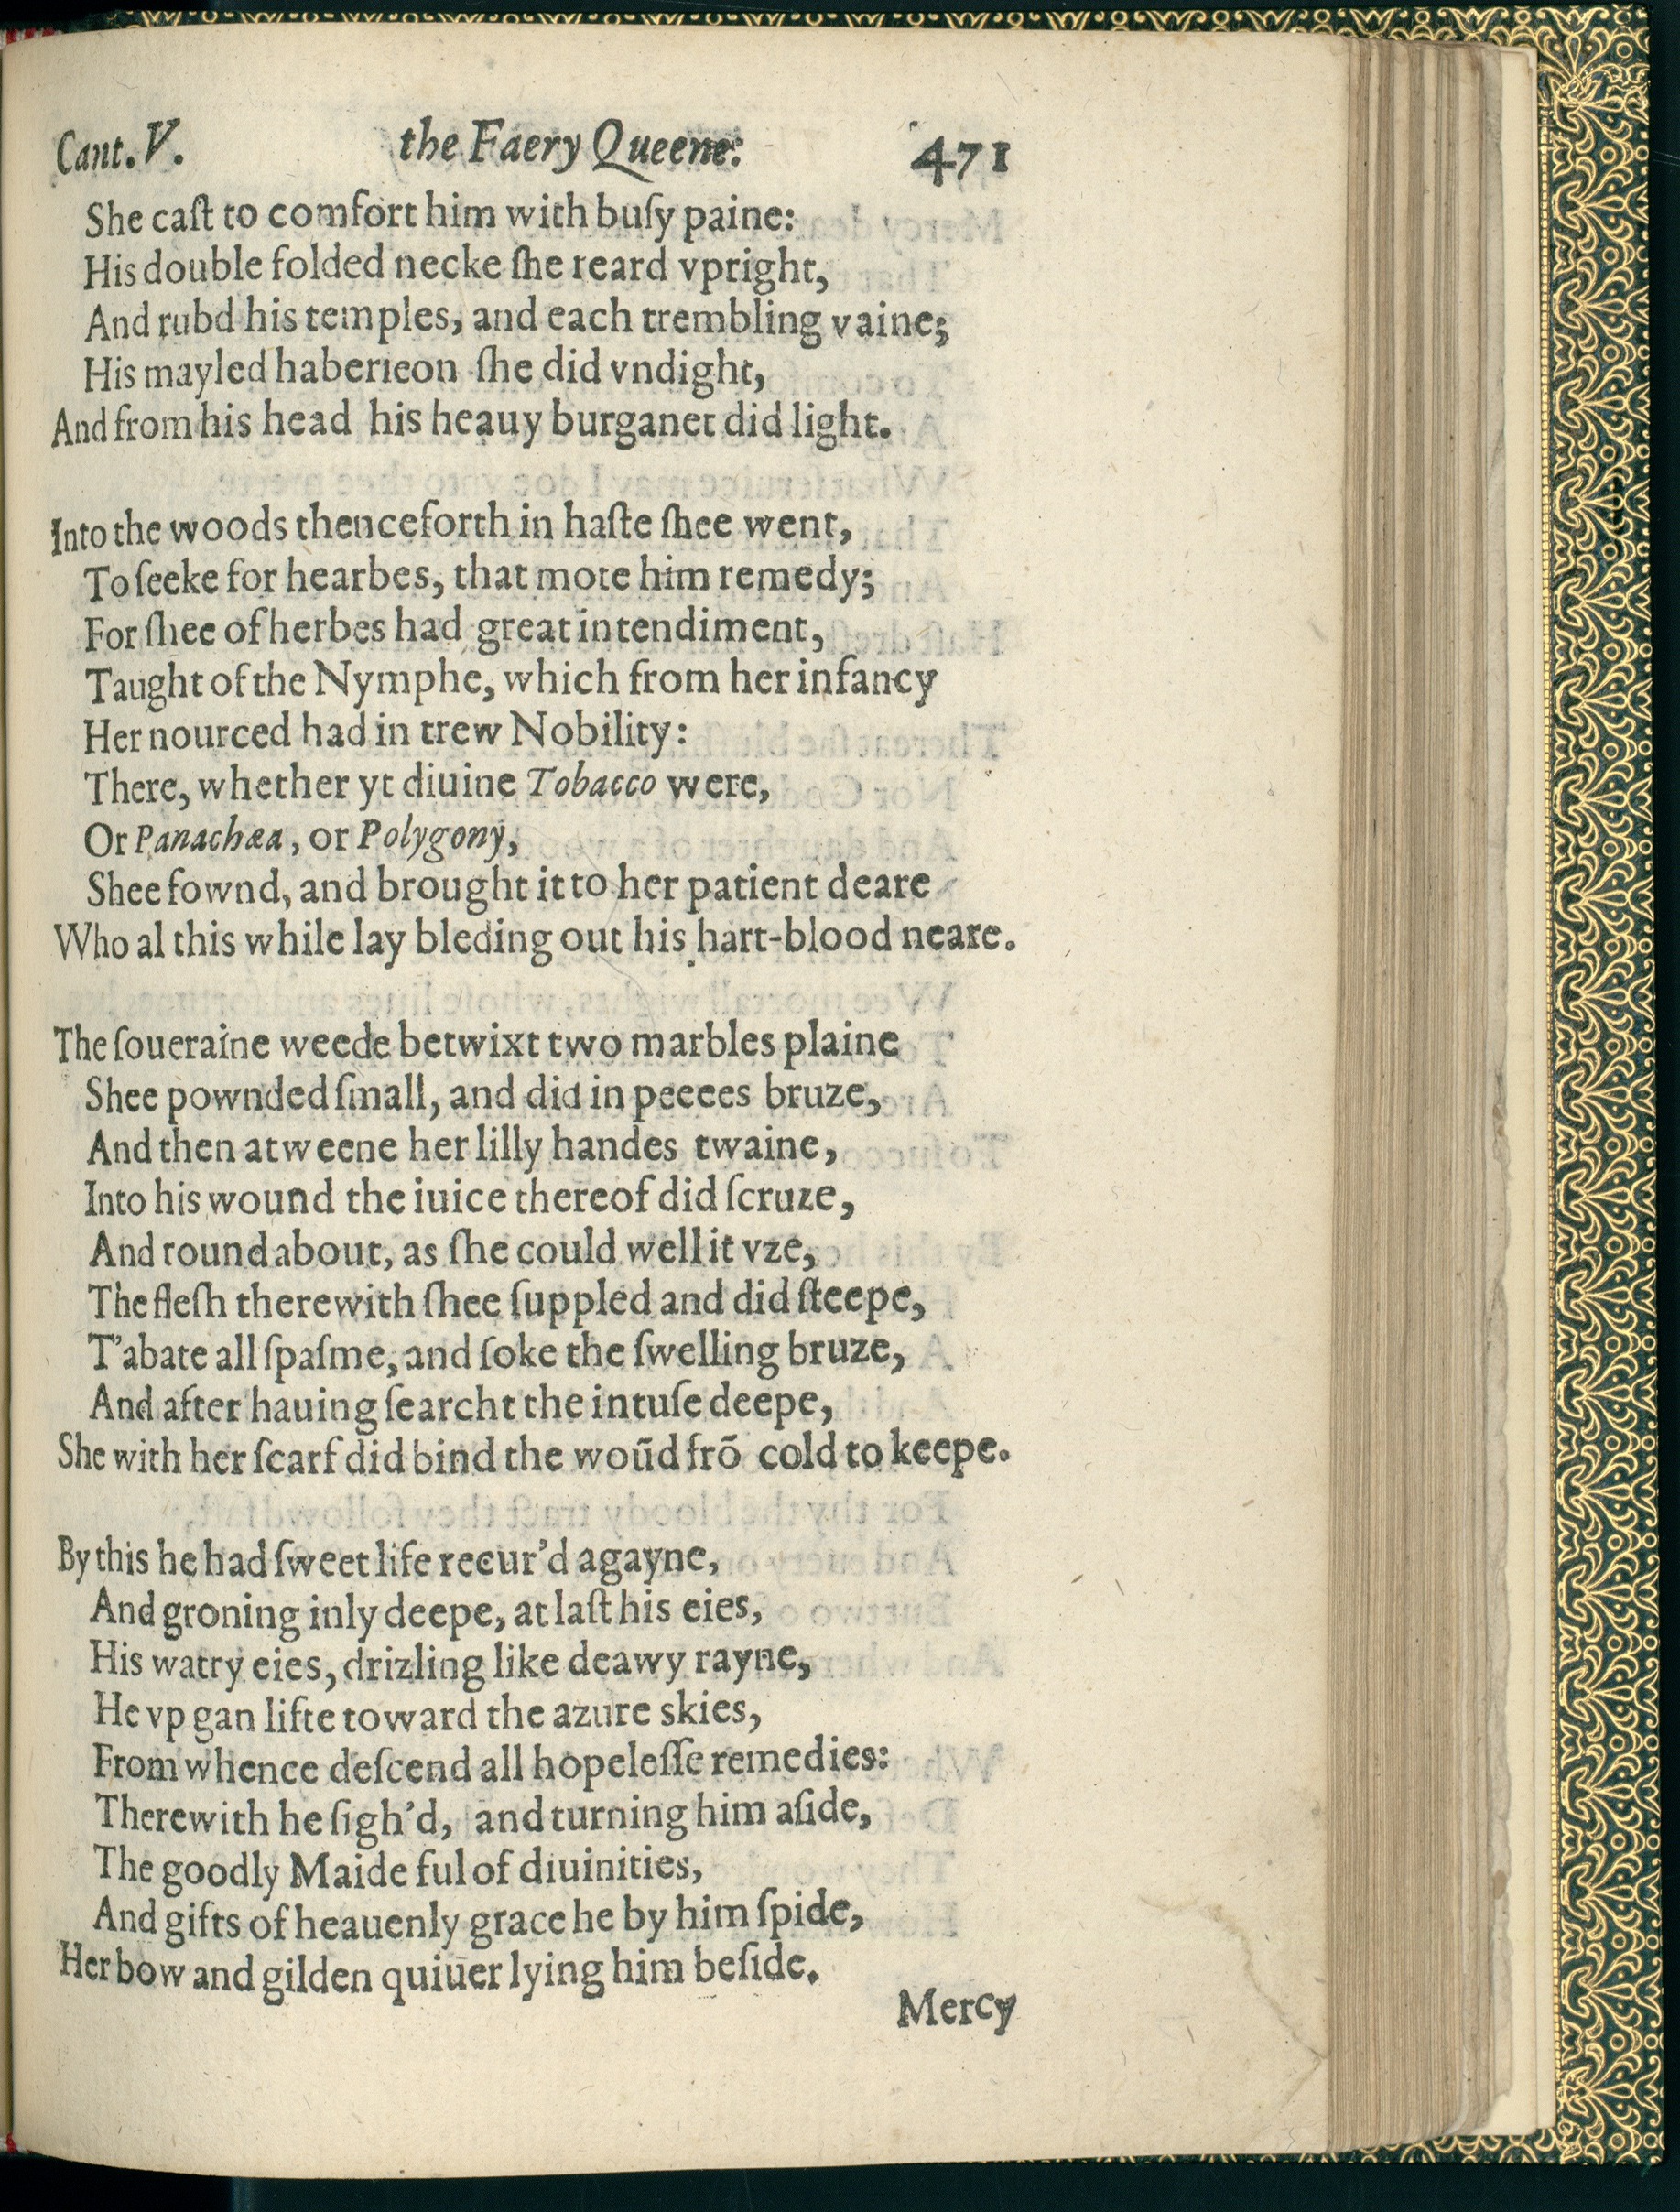 Cant. V. the Faery Queene. 471
She caſt to comfort him with buſy paine:
His double folded necke ſhe reard vpright,
And rubd his temples, and each trembling vaine;
His mayled haberieon ſhe did vndight,
And from his head his heauy burganet did light.
Into the woods thenceforth in haſte ſhee went,
To ſeeke for hearbes, that mote him remedy;
For ſhee of herbes had great intendiment,
Taught of the Nymphe, which from her infancy
Her nourced had in trew Nobility:
There, whether yt diuine Tobacco were,
Or Panachæa, or Polygony,
Shee fownd, and brought it to her patient deare
Who al this while lay bleding out his hart-blood neare.
The ſoueraine weede betwixt two marbles plaine
Shee pownded ſmall, and did in peeces bruze,
And then atweene her lilly handes twaine,
Into his wound the iuice thereof did ſcruze,
And round about, as ſhe could well it vze,
The fleſh therewith ſhee ſuppled and did ſteepe,
T'abate all ſpaſme, and ſoke the ſwelling bruze,
And after hauing ſearcht the intuſe deepe,
She with her ſcarf did bind the woũd frõ cold to keepe.
By this he had ſweet life recur'd agayne,
And groning inly deepe, at laſt his eies,
His watry eies, drizling like deawy rayne,
He vp gan lifte toward the azure skies,
From whence deſcend all hopeleſſe remedies:
Therewith he ſigh'd, and turning him aſide,
The goodly Maide ful of diuinities,
And gifts of heauenly grace he by him ſpide,
Her bow and gilden quiuer lying him beſide.
Mercy